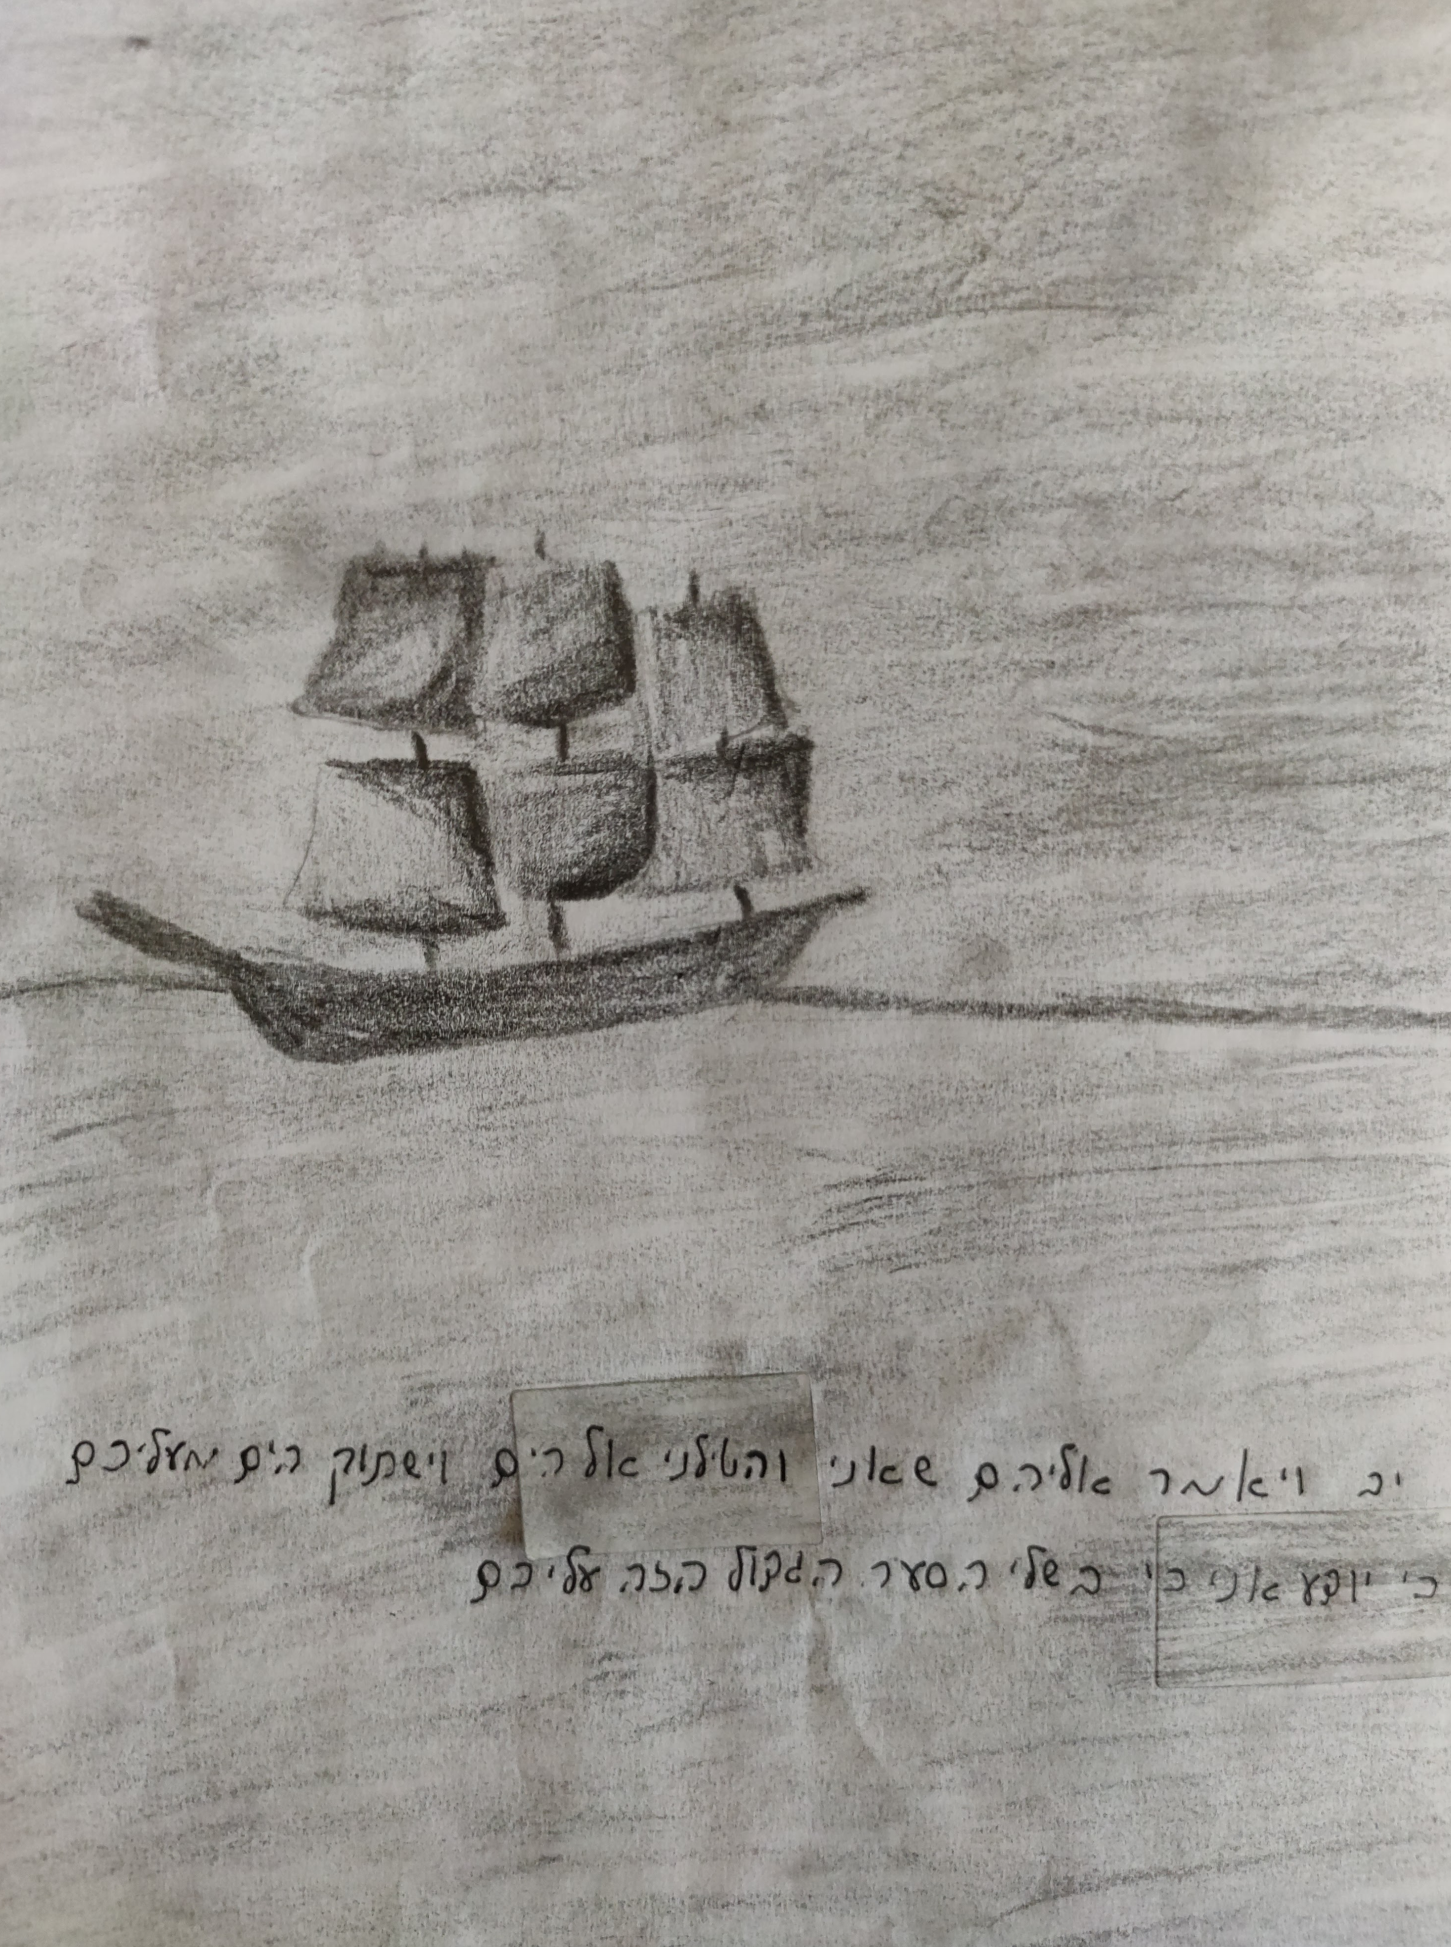 יב ויאמר אליהם שאוני והטילני אל הים וישתוק הים מעליכם
כי יודע אני כי בשלי הסער הגדול הזה עליכם